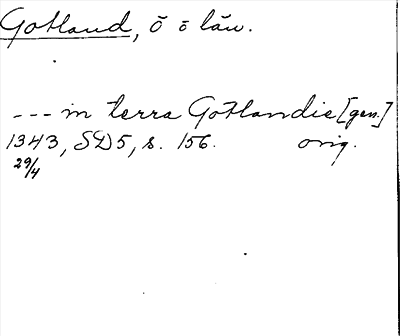 Gotland, ö o län.
--- in terra Gotlandie [gen.]
1343, SD5, s. 156. orig.
29/4